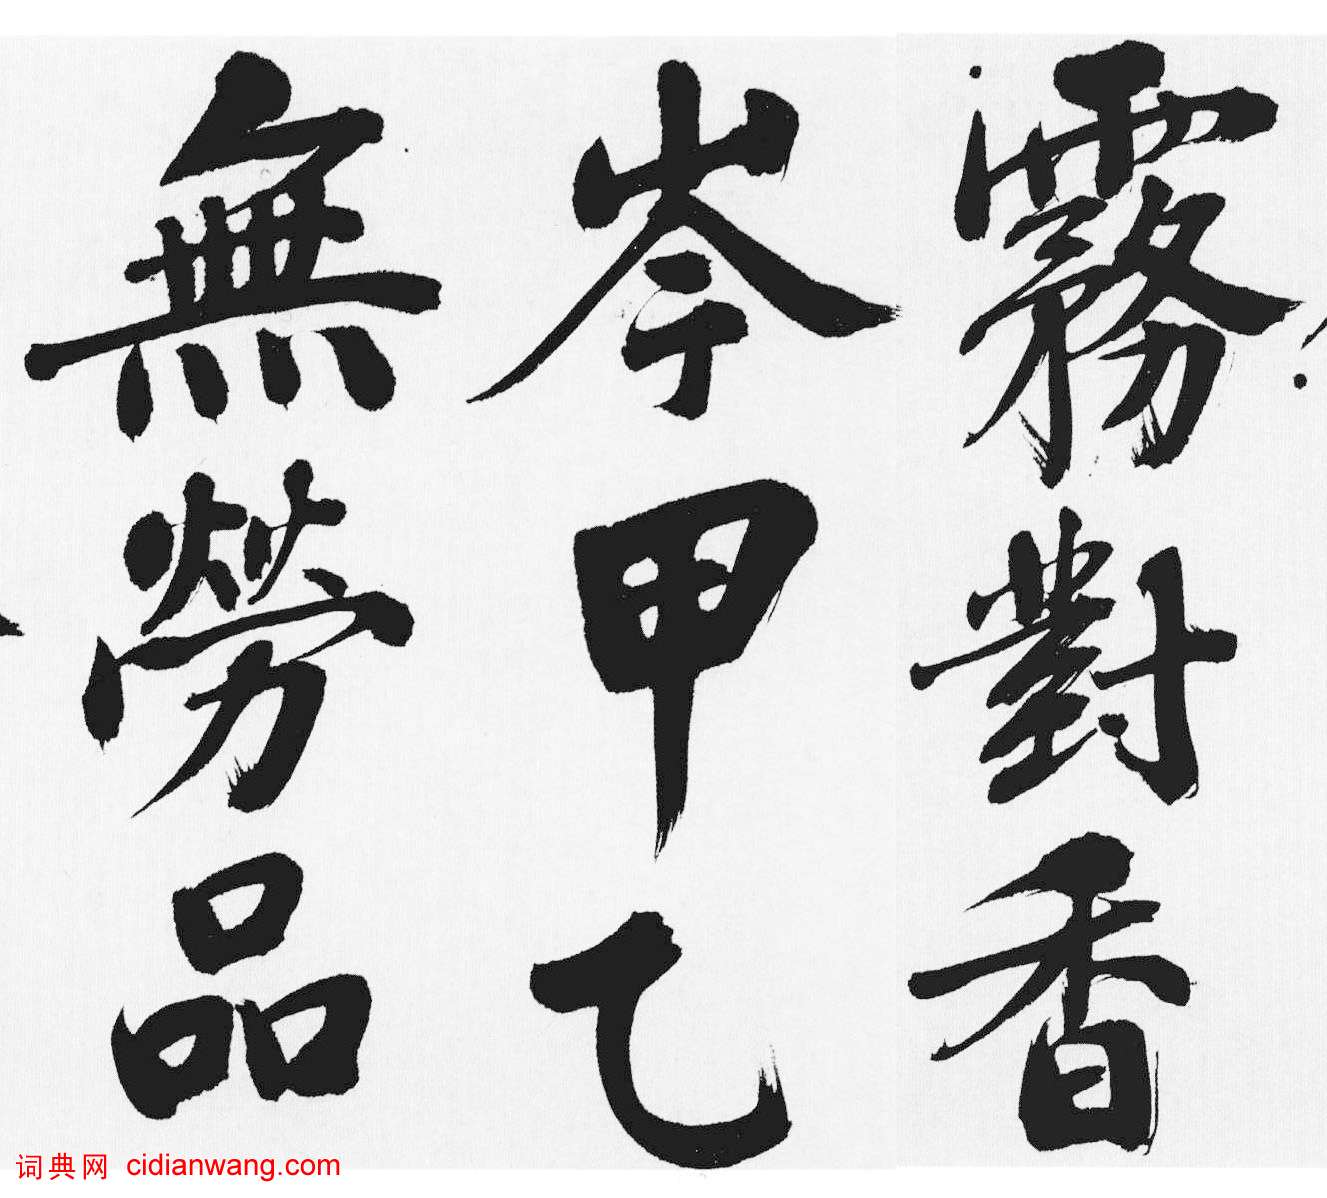 霧對香
岑甲乙
無勞品
词典网 cidianwang.com